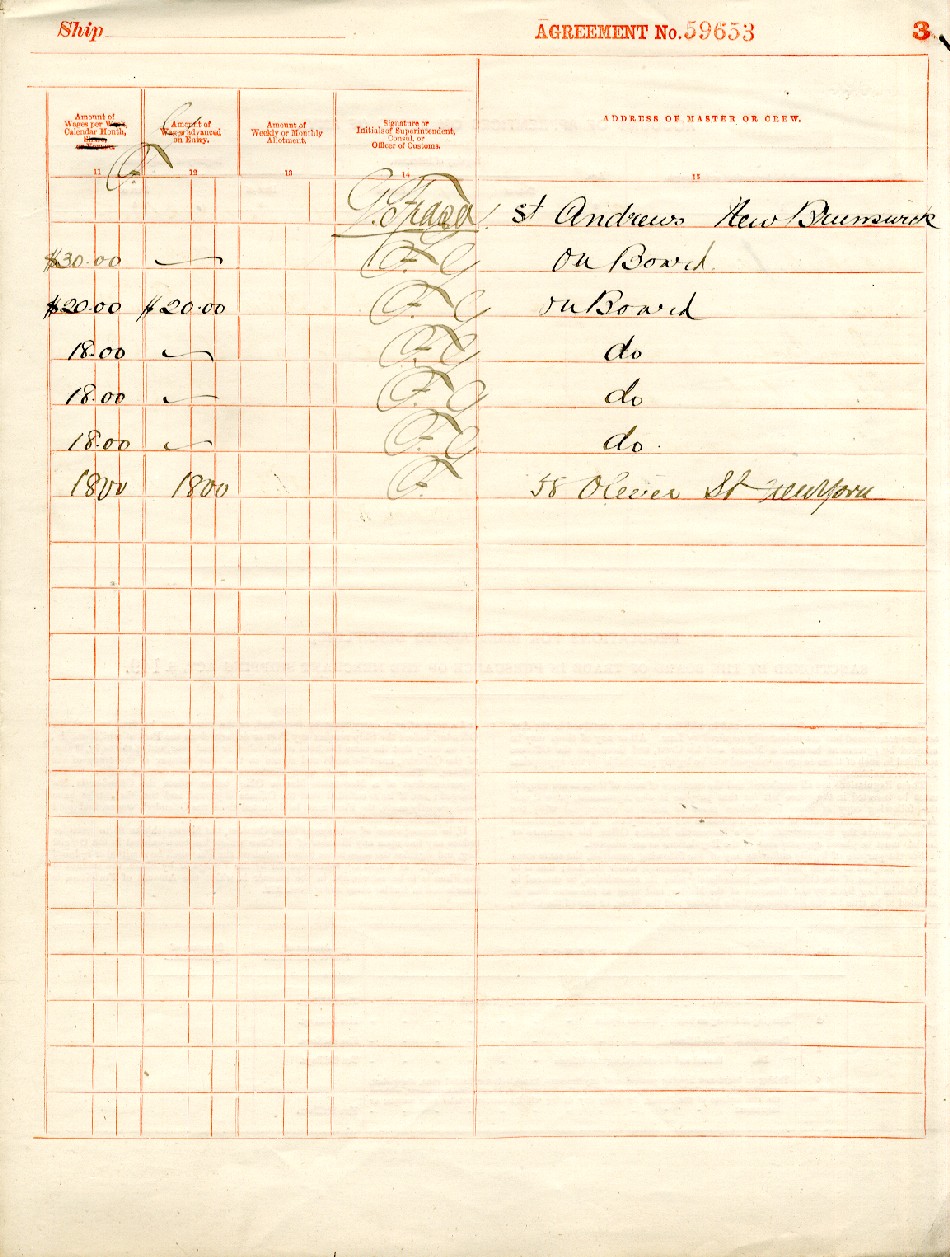 Ship AGREEMENT No. 59653 3
Amount of Wages per Week, Calendar Month,
Amount of Wages advanced on Entry.
Amount of Weekly or Monthly Allotment.
Signature or Initials of Superintendent, Consul, or Officer of Customs.
ADDRESS OF MASTER OR CREW.
11 12 13 14 15
St Andrews New Brunswick
$30.00 on Board.
$20.00 $20.00 on Board
18.00 do
18.00 do
18.00 do.
1800 1800 58 Oliver St New York